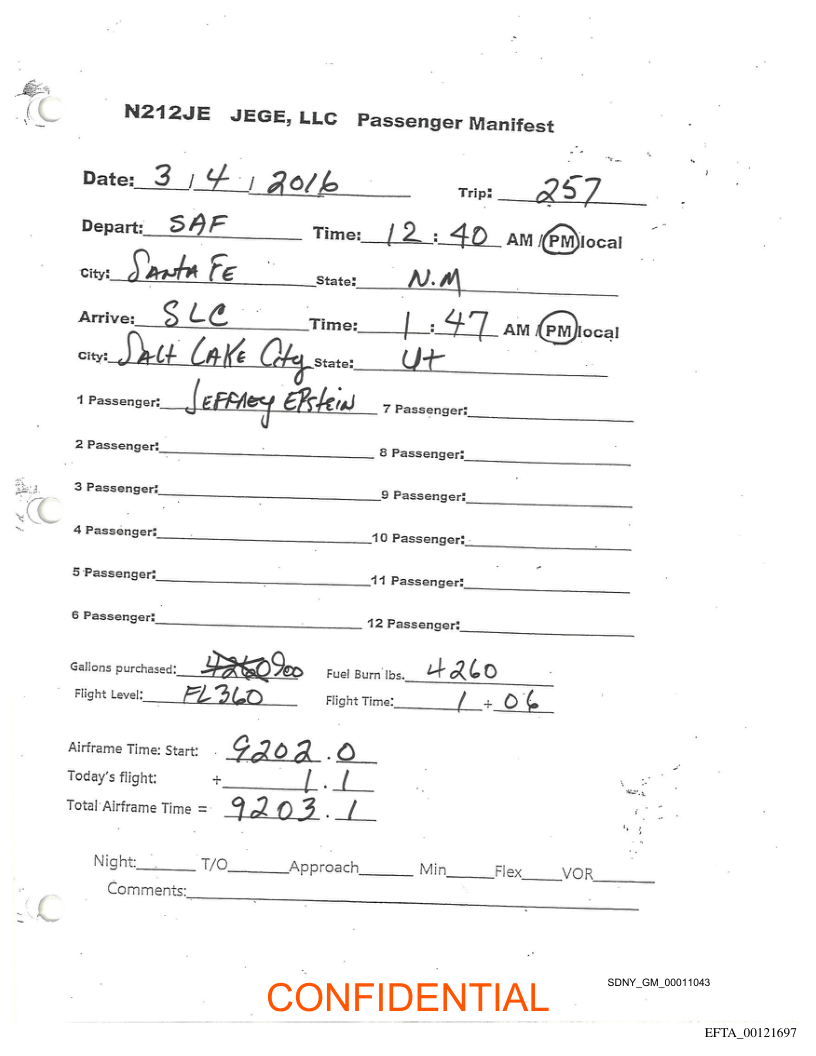 N212JE JEGE, LLC Passenger Manifest
Date: 3 / 4 / 2016 Trip: 257
Depart: SAF Time: 12 : 40 AM / PM local
City: SANTA FE State: N.M
Arrive: SLC Time: 1 : 47 AM / PM local
City: SALT LAKE City State: Ut
1 Passenger: JEFFREY EPStEiN 7 Passenger:
2 Passenger: 8 Passenger:
3 Passenger: 9 Passenger:
4 Passenger: 10 Passenger:
5 Passenger: 11 Passenger:
6 Passenger: 12 Passenger:
Gallons purchased: 4260 900 Fuel Burn lbs. 4260
Flight Level: FL360 Flight Time: 1 + 06
Airframe Time: Start: 9202.0
Today's flight: + 1.1
Total Airframe Time = 9203.1
Night: T/O Approach Min Flex VOR
Comments:
SDNY_GM_00011043
CONFIDENTIAL
EFTA_00121697